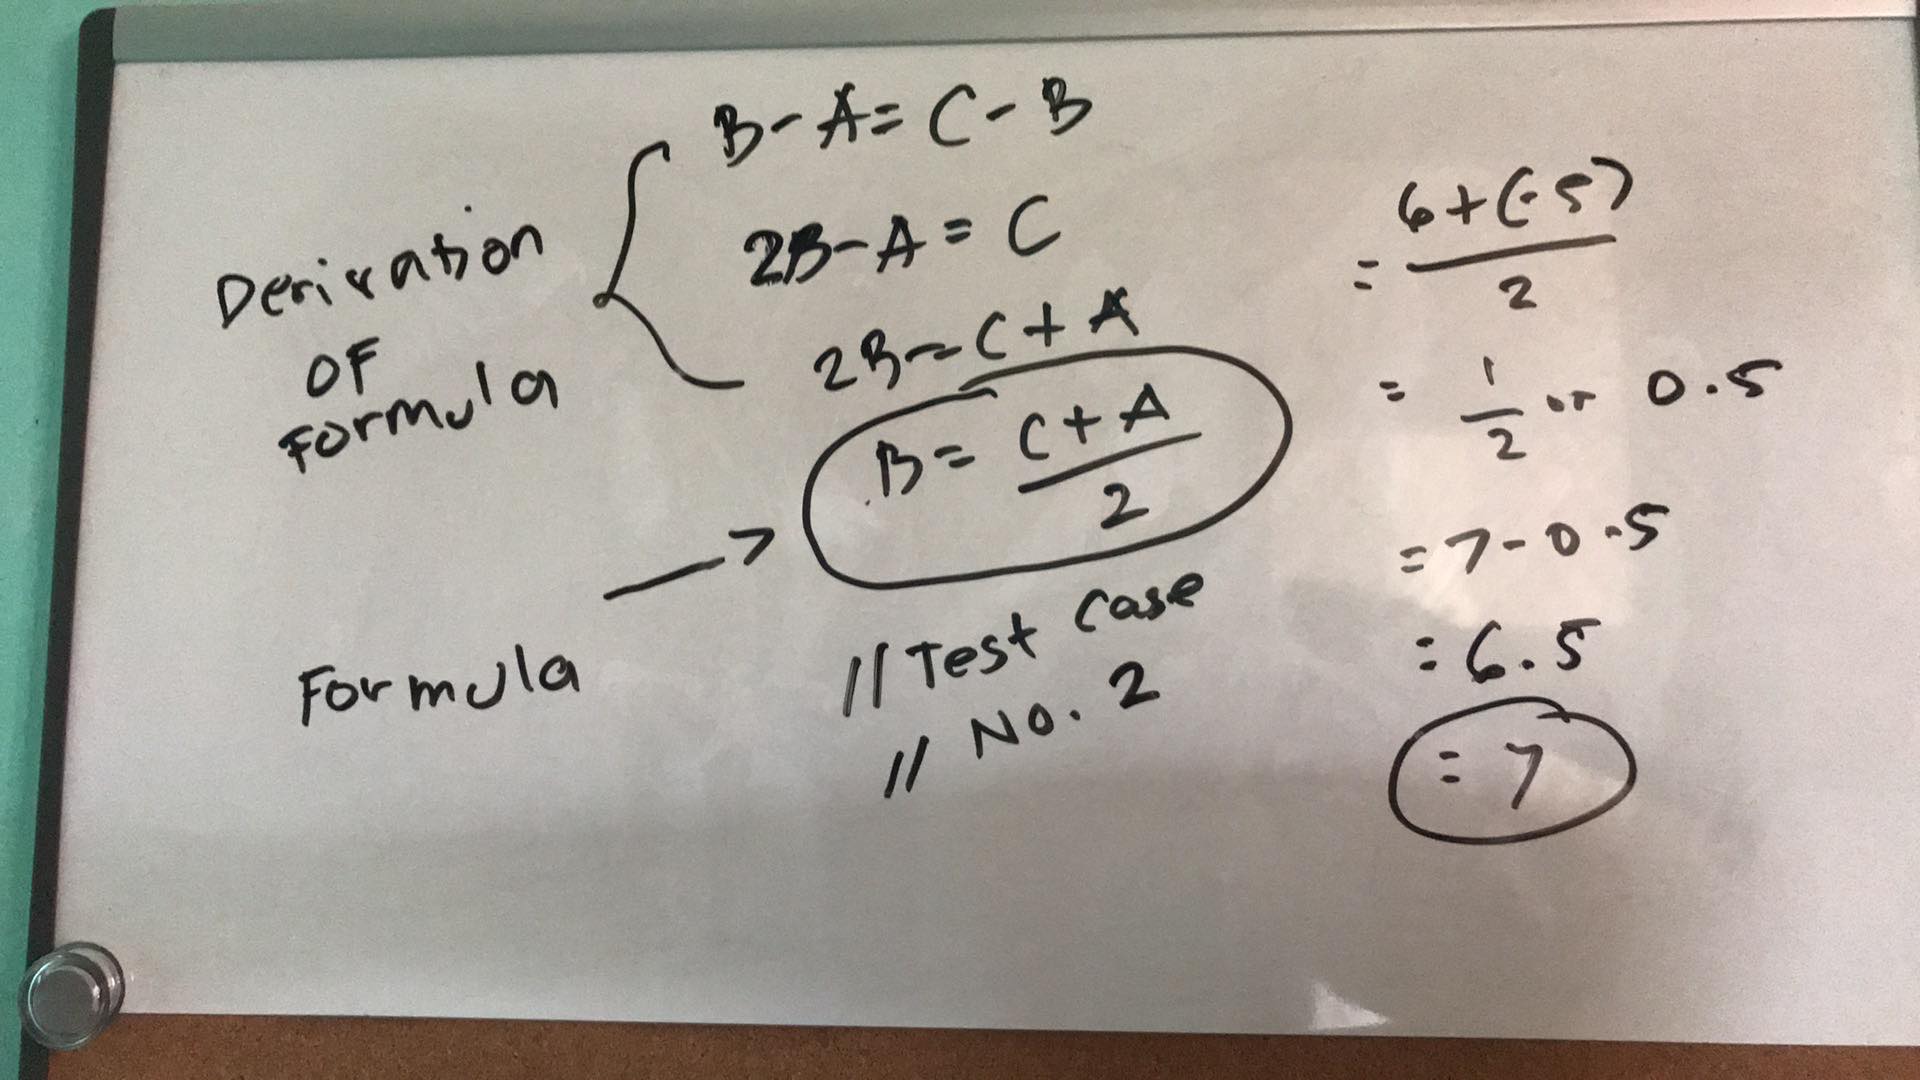 Derivation
OF
Formula
B-A=C-B
2B-A=C
2B=C+A
B=C+A
2
Formula
//Test case
// No. 2
=6+(-5)
2
=1 or 0.5
2
=7-0.5
=6.5
=7